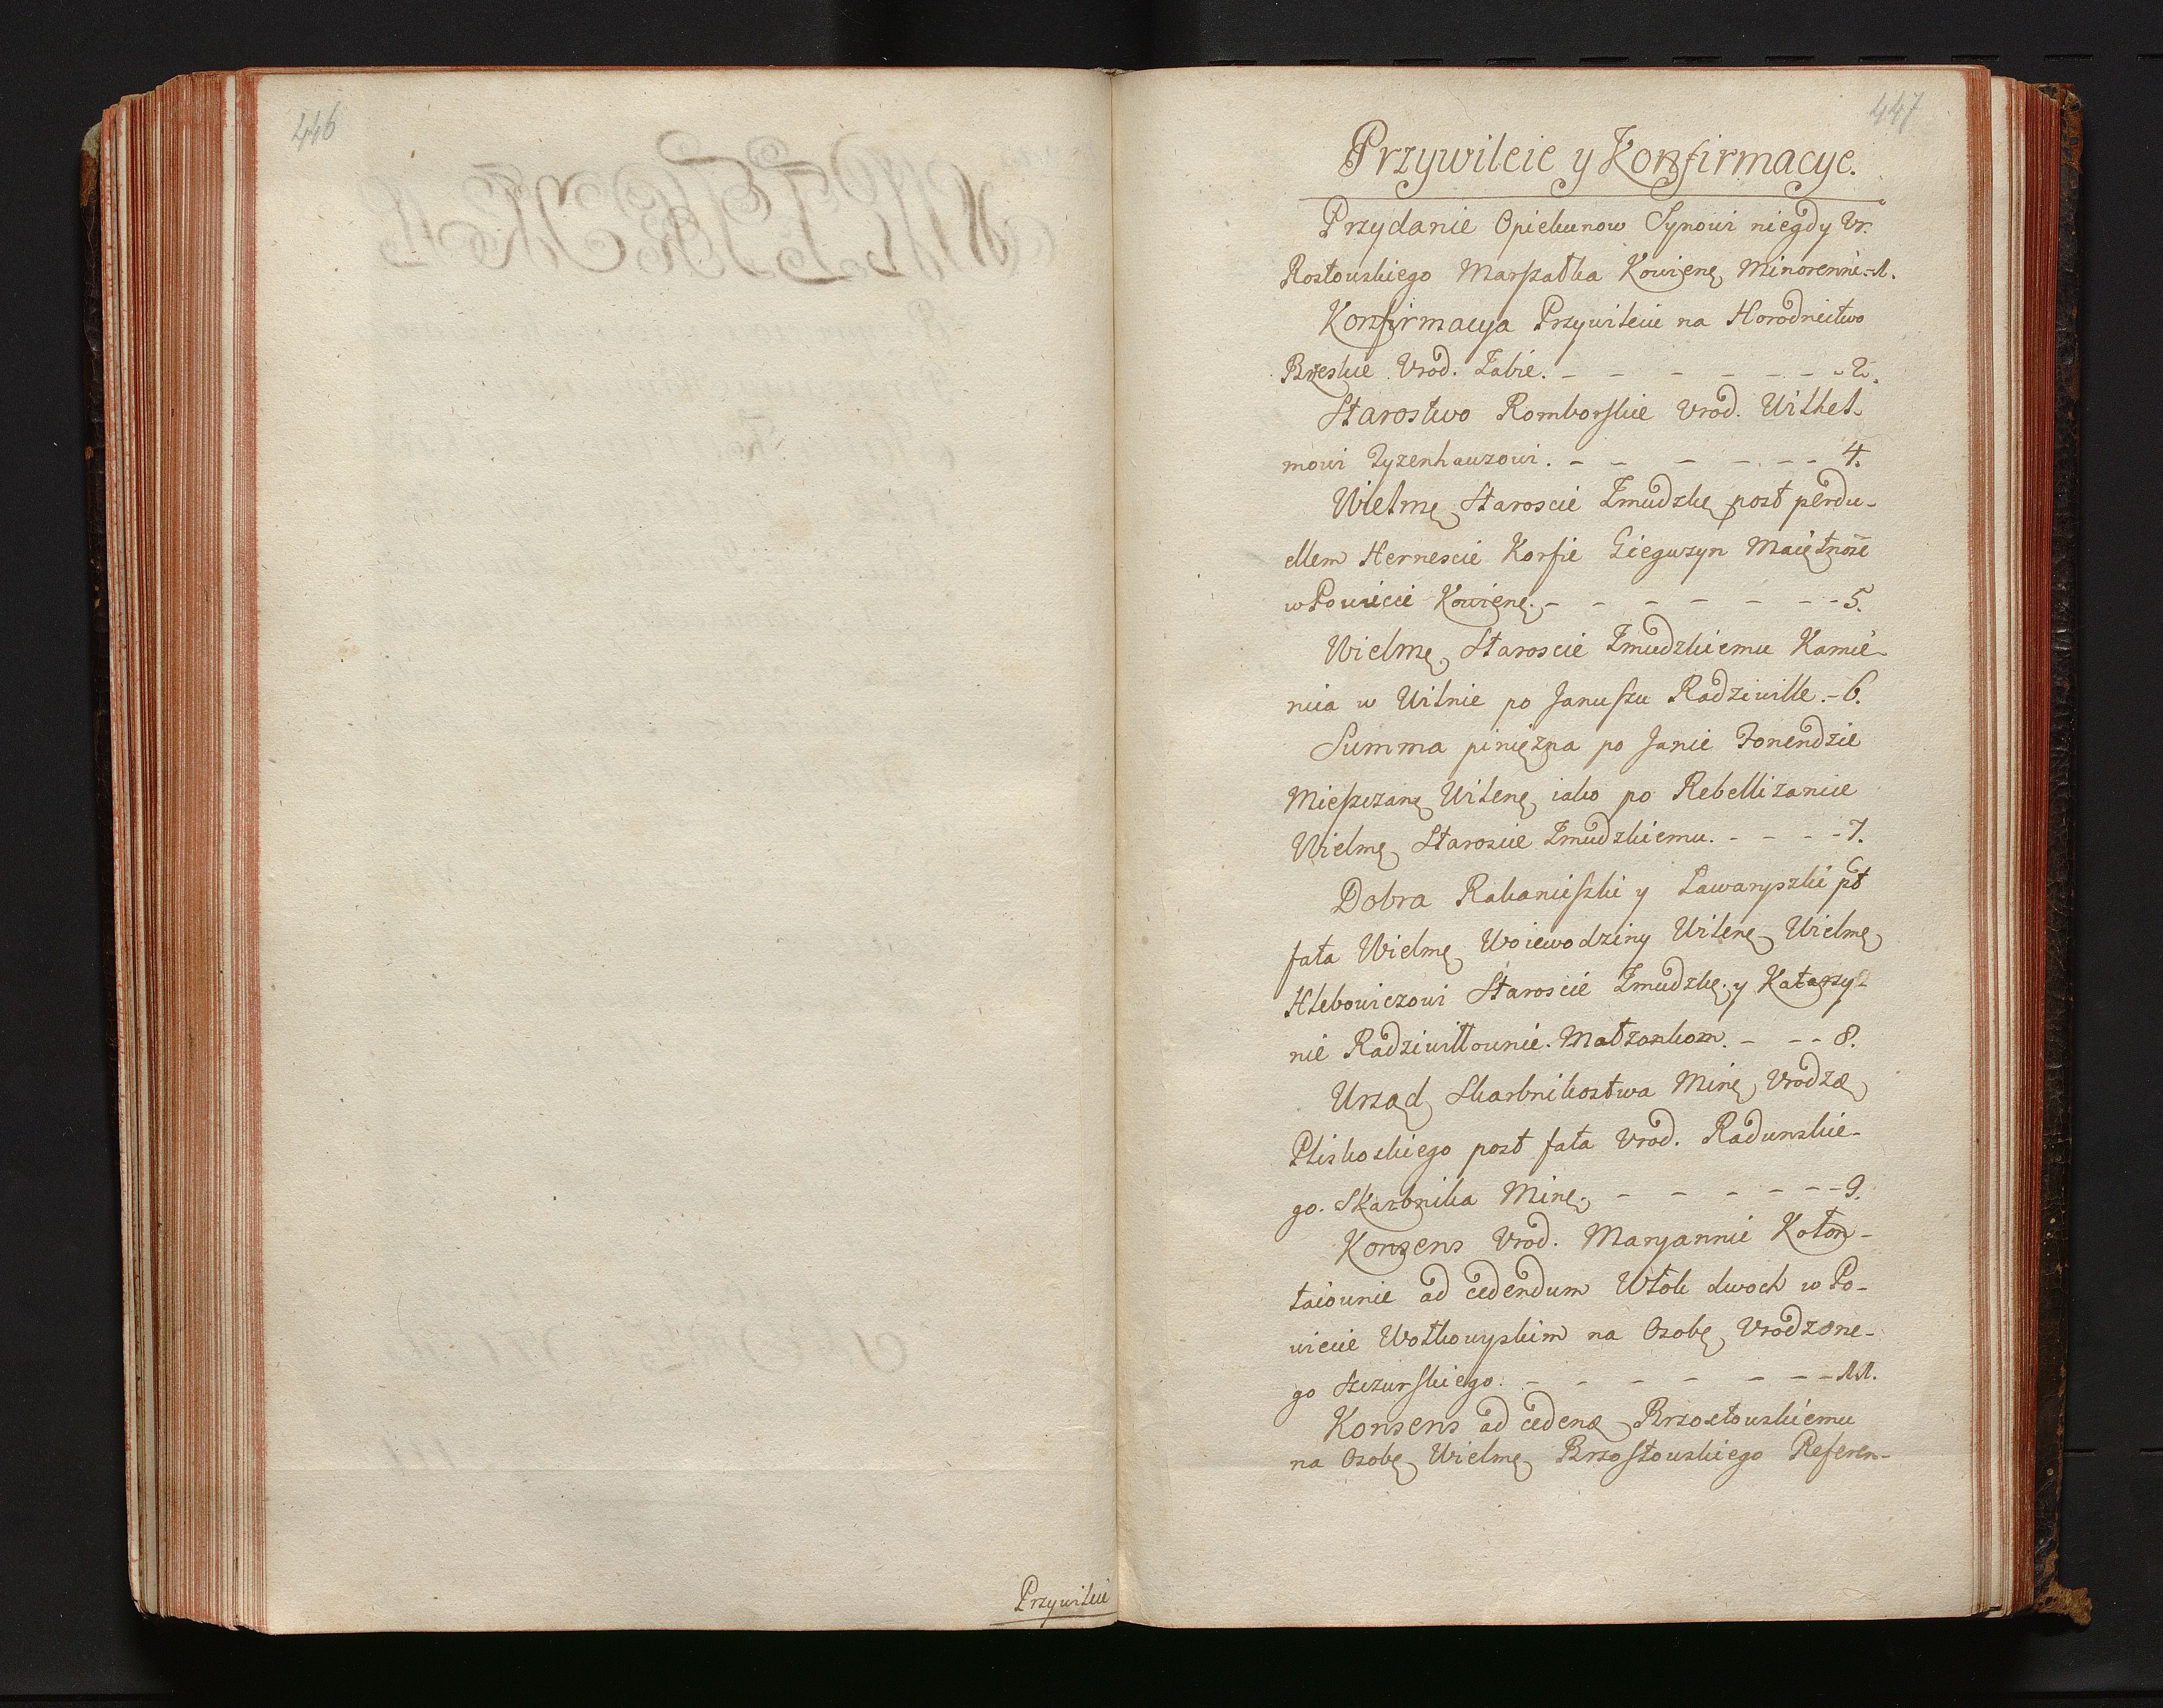 446
Przywileie
447
Przywileie y Konfirmacye.
Przydanie Opiekunow Synowi niegdy Ur.
Rostowskiego Marszałka Kowienę Minorenni.-1.
Konfirmacya Przywileiu na Horodnictwo
Brzeskie Urod. Zabie. - - - - - - - 2.
Starostwo Romborskie Urod. Wilhel-
mowi Tyzenhauzowi. - - - - - - 4.
Wielmę Staroscie Zmudzkę post perdu-
ellem Hernescie Korfie Giegwzyn Maiętnosc
w Powiecie Kowienę. - - - - - - - 5.
Wielmę Staroscie Zmudzkiemu Kamie-
nica w Wilnie po Januszu Radziwille. - 6.
Summa pinięzna po Janie Fonendzie
Mieszczanę Wilenę iako po Rebellizancie
Wielmę Staroscie Zmudzkiemu. - - - - 7.
Dobra Rakaniszki y Lawaryszki pt
fata Wielmę Woiewodziny Wilenę Wielmę
Hlebowiczowi Staroscie Zmudzkę y Katarzy-
nie Radziwiłłownie. Małzonkom. - - - 8.
Urząd Skarbnikostwa Minę Urodzę
Pliskoskiego post fata Urod. Radunskie-
go. Skarbnika Minę. - - - - - - 9.
Konsens Urod. Maryannie Kołon-
taiownie ad cedendum Włok dwoch w Po-
wiecie Wołkowyskim na Osobę Urodzone-
go Szczurskiego. - - - - - - - 11.
Konsens ad cedenę Brzostowskiemu
na Osobę Wielmę Brzostowskiego Referen-